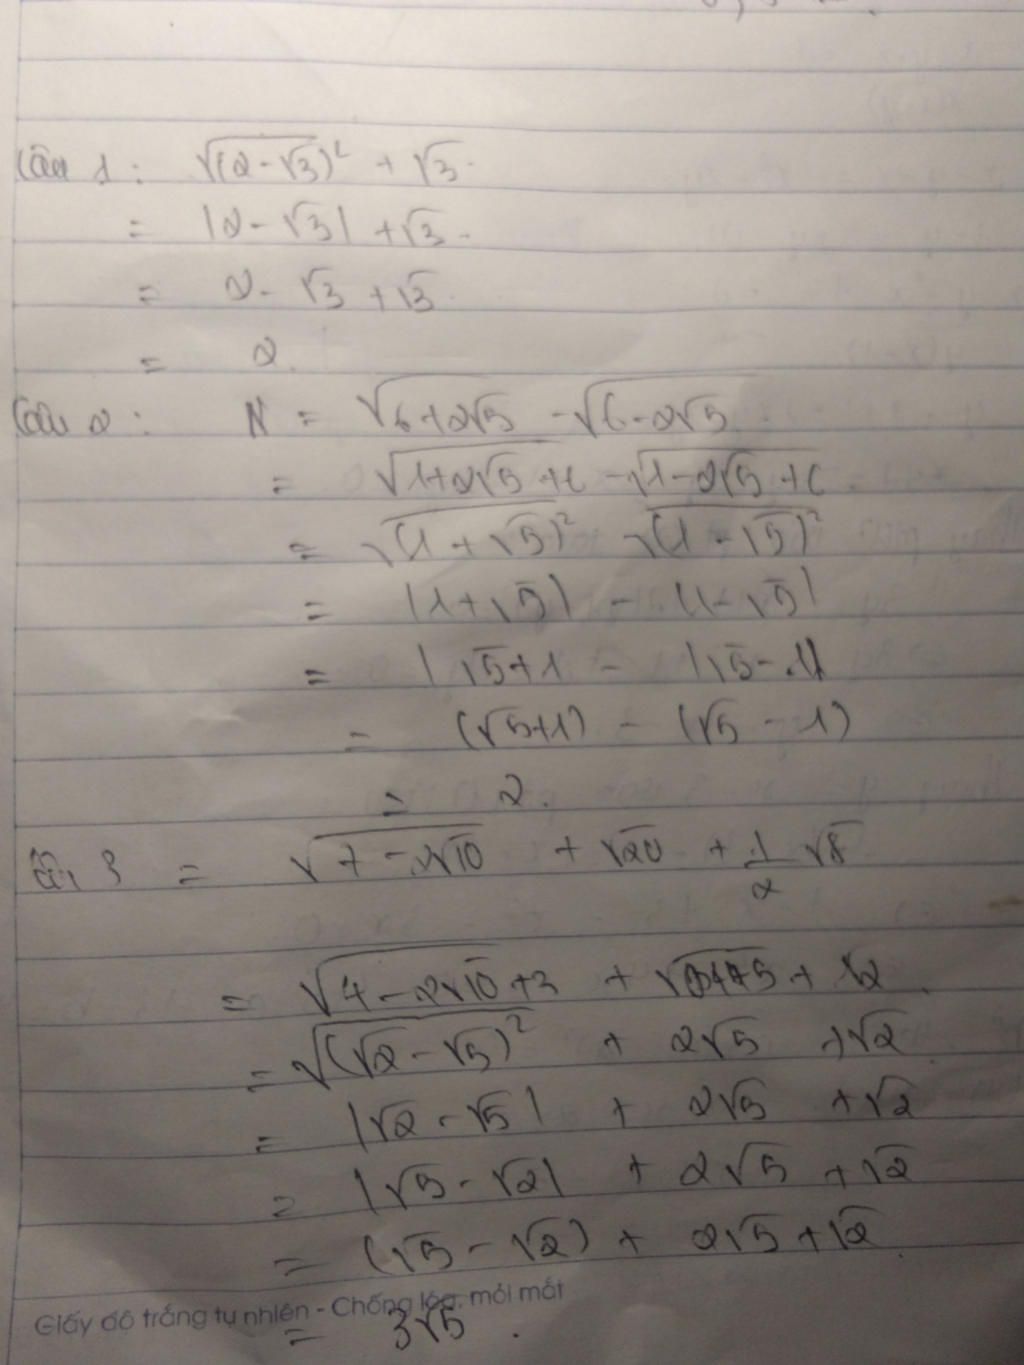 Câu 1 : √(2-√3)² + √3.
= |2-√3| + √3.
= 2-√3 + √3.
= 2.
Câu 2 : N = √6+2√5 - √6-2√5
= √1+2√5+ - √1-2√5+
= √(1+√5)² - √(1-√5)²
= |1+√5| - |1-√5|
= |√5+1 - |√5-1|
= (√5+1) - (√5-1)
= 2.
3 = √7-2√10 + √20 + 1/2 √8
= √4-2√10+3 + + √2.
= √(√2-√5)² + 2√5 + √2.
= |√2-√5| + 2√5 + √2
= |√5-√2| + 2√5 + √2
= (√5-√2) + 2√5 + √2.
Giấy độ trắng tự nhiên - Chống lóa, mỏi mắt
= 3√5.